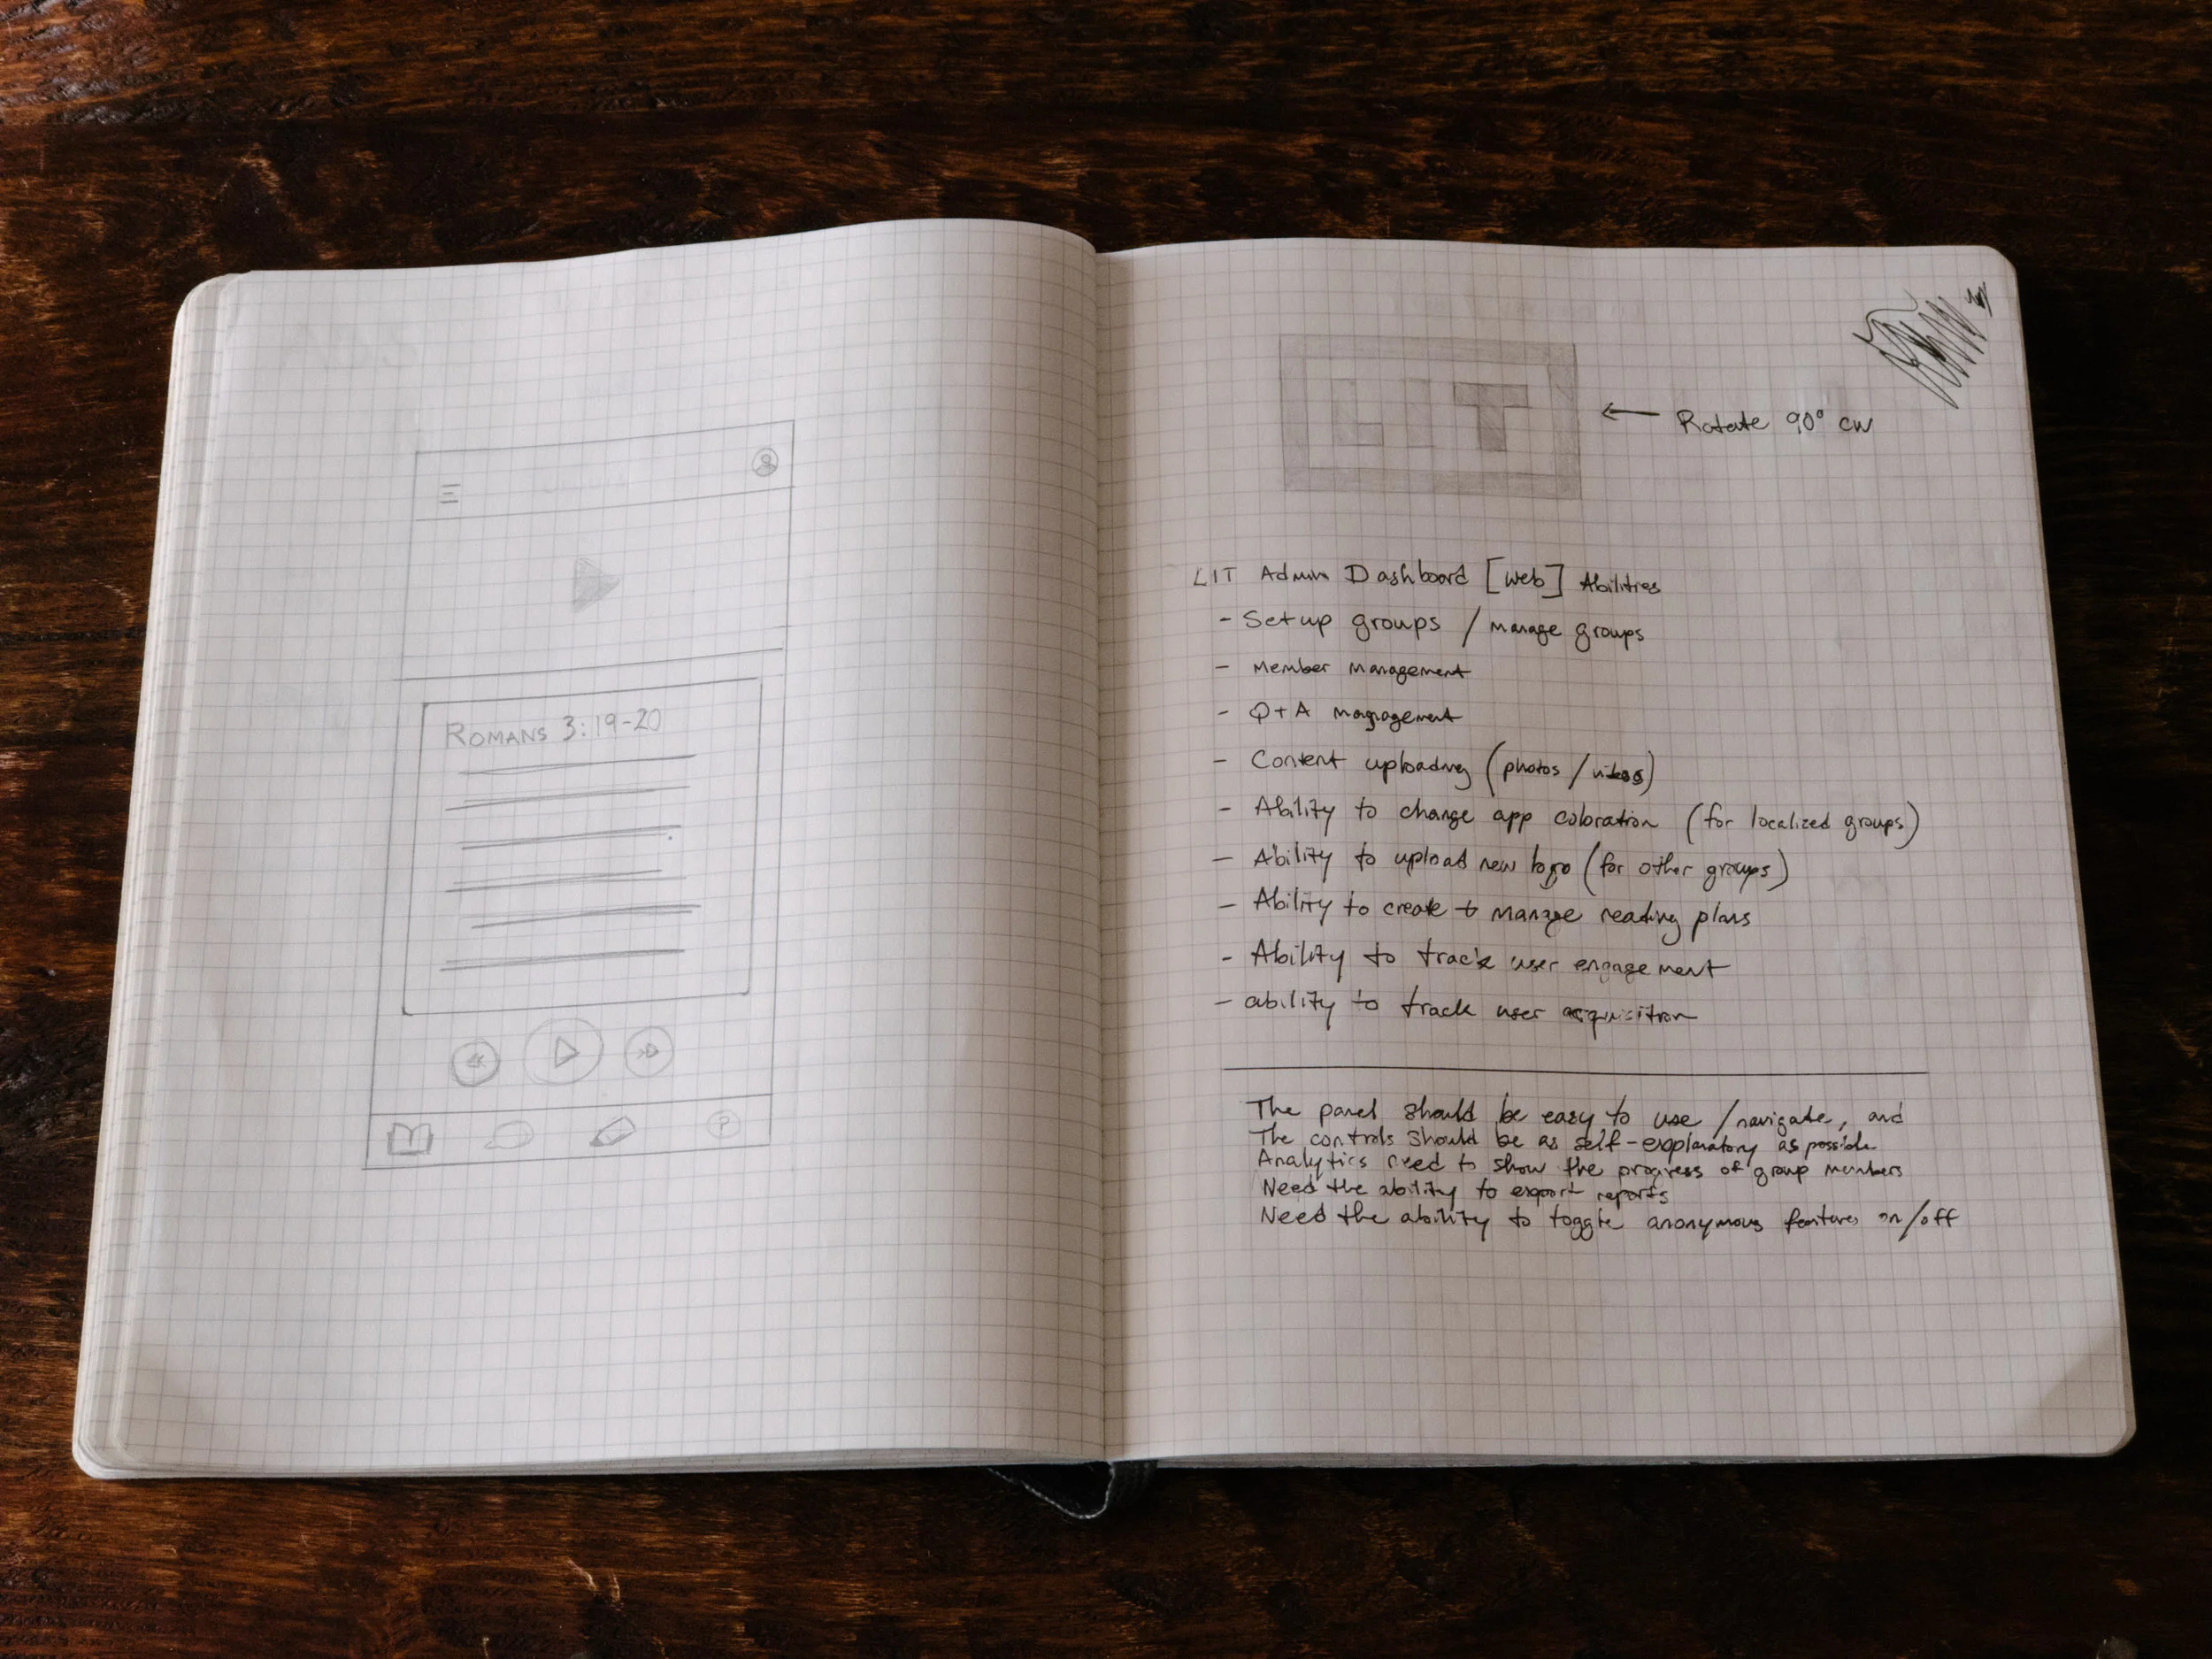 ROMANS 3:19-20
?
LIT
← Rotate 90° CW
LIT Admin Dashboard [web] Abilities
- Setup groups / manage groups
- Member management
- Q+A management
- Content uploading (photos / videos)
- Ability to change app coloration (for localized groups)
- Ability to upload new logo (for other groups)
- Ability to create + manage reading plans
- Ability to track user engagement
- ability to track user acquisition
The panel should be easy to use / navigate, and
The controls should be as self-explanatory as possible
Analytics need to show the progress of group members
Need the ability to export reports
Need the ability to toggle anonymous features on/off